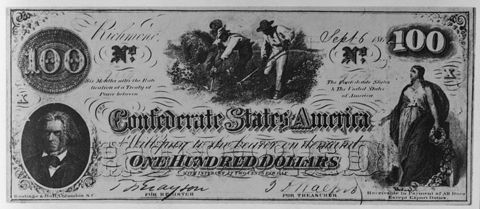 Richmond, Sept 6 186
100
No.
No.
100
Six Months after the Rati
fication of a Treaty of
Peace between
The Confederate States
& The United States
of America
Confederate States America
Will pay to the bearer on demand
ONE HUNDRED DOLLARS
WITH INTEREST AT TWO CENTS PER DAY
FOR REGISTER
FOR TREASURER
Keatinge & Ball, Columbia, S.C.
Receivable in Payment of All Dues
Except Export Duties